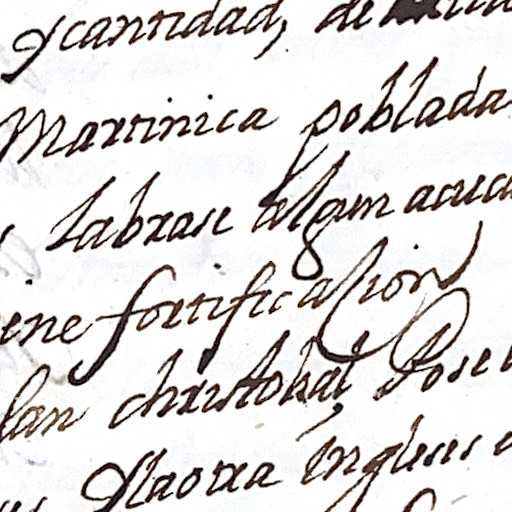 y cantidad, de
Martinica poblada
labrase algun acuca
ine fortificasion
san christobal, Posee
y la otra Ingleses